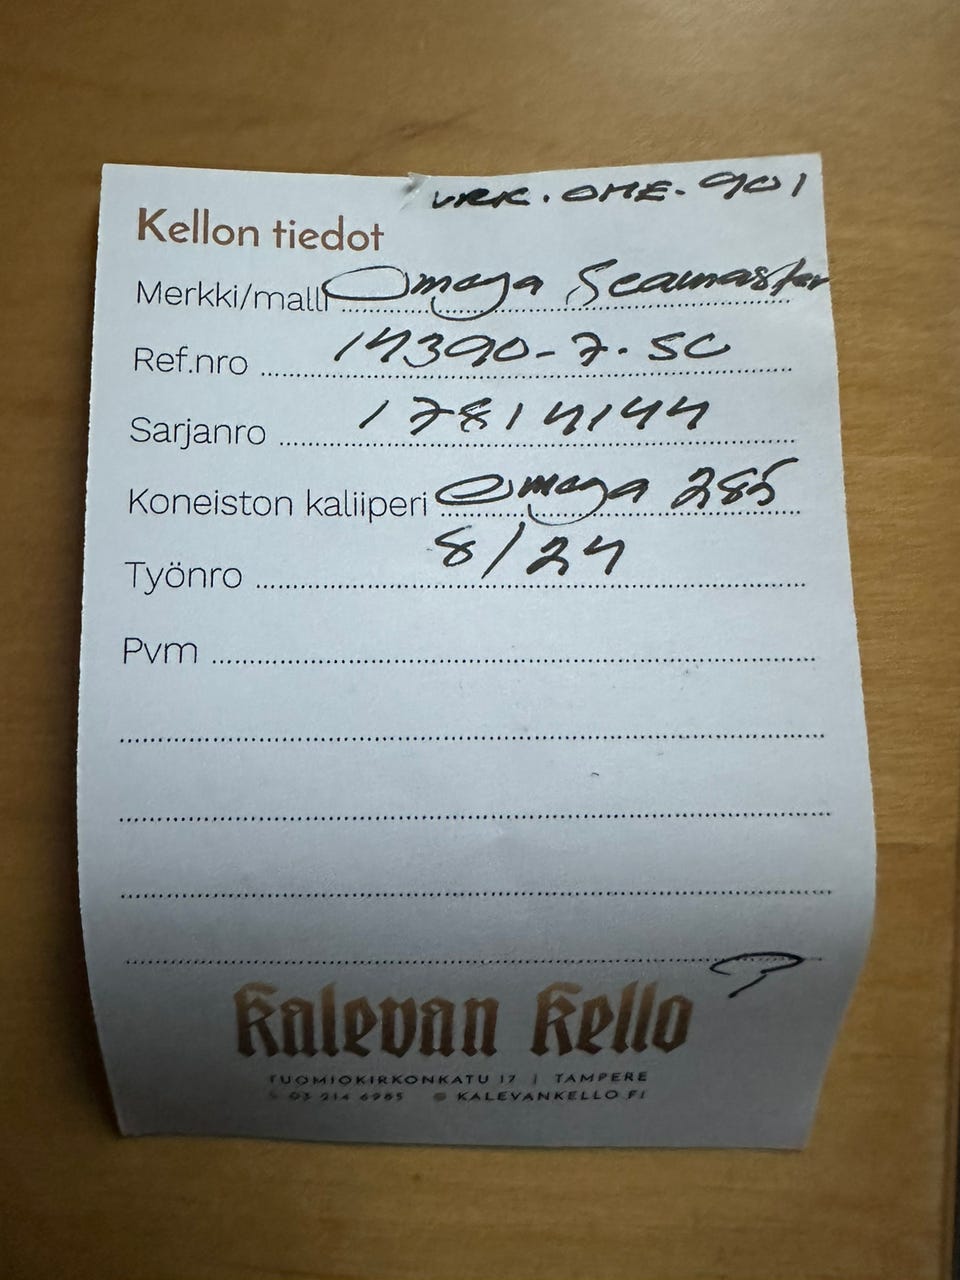 VRK. OME-901
Kellon tiedot
Merkki/malli Omega Seamaster
Ref.nro 14390-7.SC
Sarjanro 17814144
Koneiston kaliiperi Omega 285
Työnro 8/24
Pvm
Kalevan Kello
TUOMIOKIRKONKATU 17 | TAMPERE
03 214 6985 KALEVANKELLO.FI